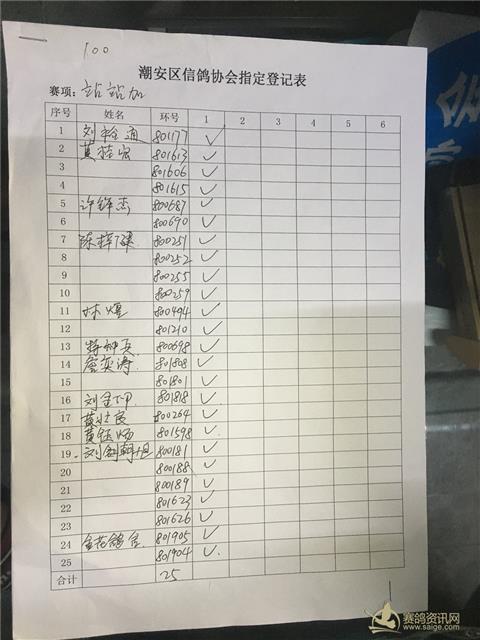 100
潮安区信鸽协会指定登记表
赛项: 站站加
序号 姓名 环号 1 2 3 4 5 6
1 刘 通 801177 ✓
2 黄 宏 801613 ✓
3 801606 ✓
4 801615 ✓
5 许锌杰 800687 ✓
6 800690 ✓
7 陈梓 800251 ✓
8 800252 ✓
9 800255 ✓
10 800259 ✓
11 林煜 800494 ✓
12 801210 ✓
13 兵 800698 ✓
14 詹奕涛 801808 ✓
15 801801 ✓
16 刘 801818 ✓
17 黄壮良 800264 ✓
18 黄钰炀 801598 ✓
19 刘 800181 ✓
20 800188 ✓
21 800189 ✓
22 801623 ✓
23 801626 ✓
24 金花鸽舍 801905 ✓
25 801904 ✓
合计 25
赛鸽资讯网
www.saige.com